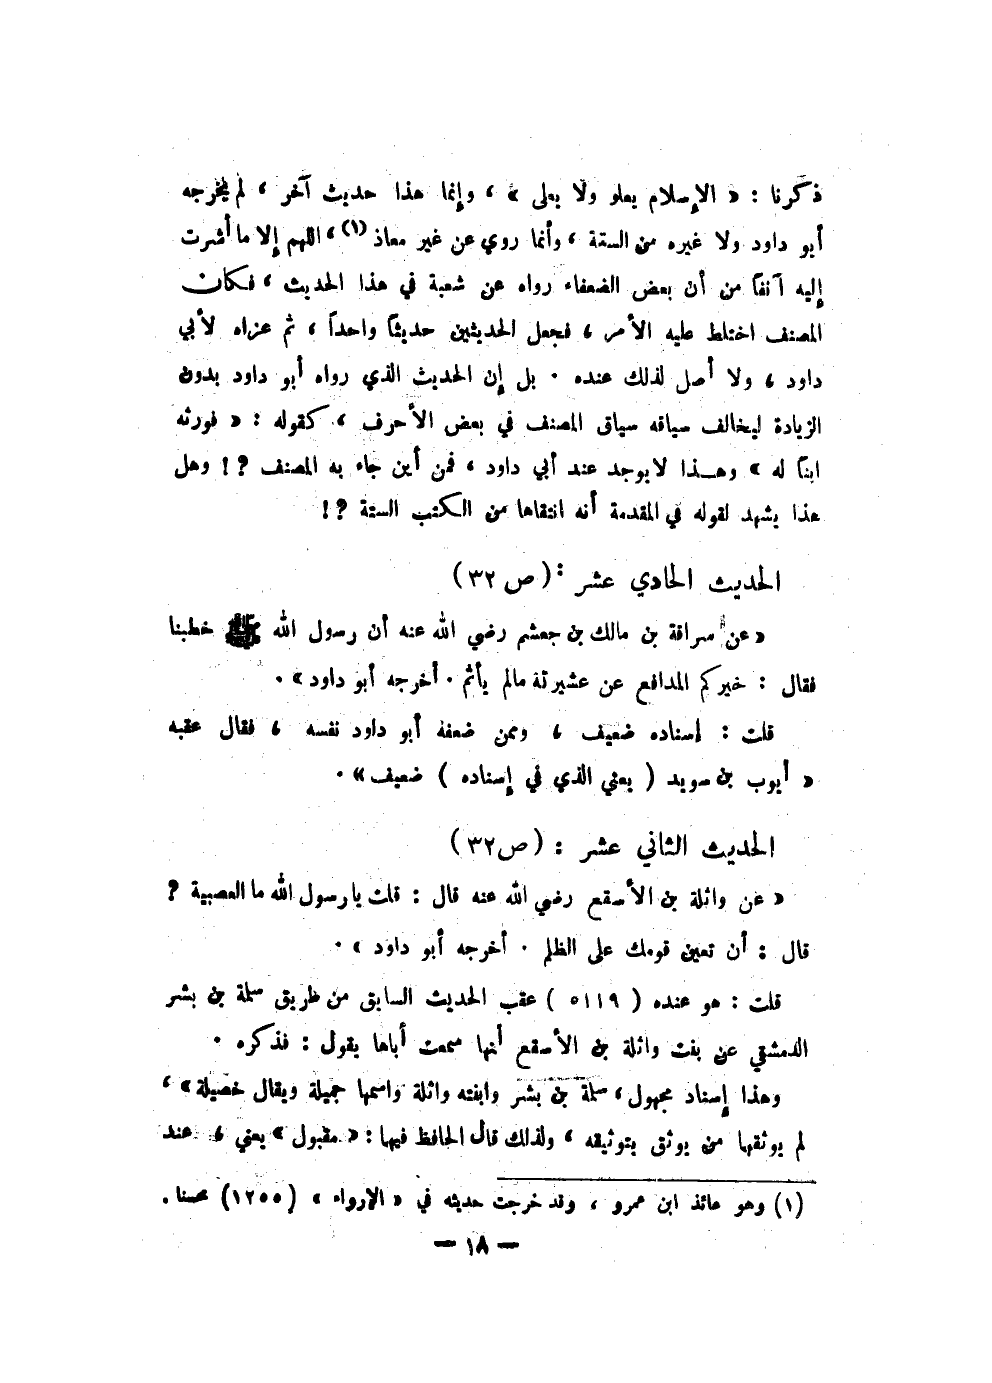 ذكرنا : « الإسلام يعلو ولا يعلى » ، وإنما هذا حديث آخر ، لم يخرجه
أبو داود ولا غيره من الستة ، وأنما روي عن غير معاذ (١) ، اللهم إلا ما أشرت
إليه آنفاً من أن بعض الضعفاء رواه عن شعبة في هذا الحديث ، فكان
المصنف اختلط عليه الأمر ، فجعل الحديثين حديثاً واحداً ، ثم عزاه لأبي
داود ، ولا أصل لذلك عنده . بل إن الحديث الذي رواه أبو داود بدون
الزيادة ليخالف سياقه سياق المصنف في بعض الأحرف ، كقوله : « فورثه
ابناً له » وهـذا لا يوجد عند أبي داود ، فمن أين جاء به المصنف ؟ ! وهل
هذا يشهد لقوله في المقدمة أنه انتقاها من الكتب الستة ؟ !
الحديث الحادي عشر : ( ص ٣٢ )
« عن سراقة بن مالك بن جعشم رضي الله عنه أن رسول الله ﷺ خطبنا
فقال : خيركم المدافع عن عشيرته مالم يأثم . أخرجه أبو داود » .
قلت : إسناده ضعيف ، وممن ضعفه أبو داود نفسه ، فقال عقبه
« أيوب بن سويد ( يعني الذي في إسناده ) ضعيف » .
الحديث الثاني عشر : ( ص٣٢ )
« عن واثلة بن الأسقع رضي الله عنه قال : قلت يا رسول الله ما العصبية ؟
قال : أن تعين قومك على الظلم . أخرجه أبو داود » .
قلت : هو عنده ( ٥١١٩ ) عقب الحديث السابق من طريق سلمة بن بشر
الدمشقي عن بنت واثلة بن الأسقع أنها سمعت أباها يقول : فذكره .
وهذا إسناد مجهول ، سلمة بن بشر وابنته واثلة واسمها جميلة ويقال خصيلة » ،
لم يوثقها من يوثق بتوثيقه ، ولذلك قال الحافظ فيها : « مقبول » يعني ، عند
(١) وهو عائذ ابن عمرو ، وقد خرجت حديثه في « الإرواء » (١٢٥٥) محسنا .
— ١٨ —